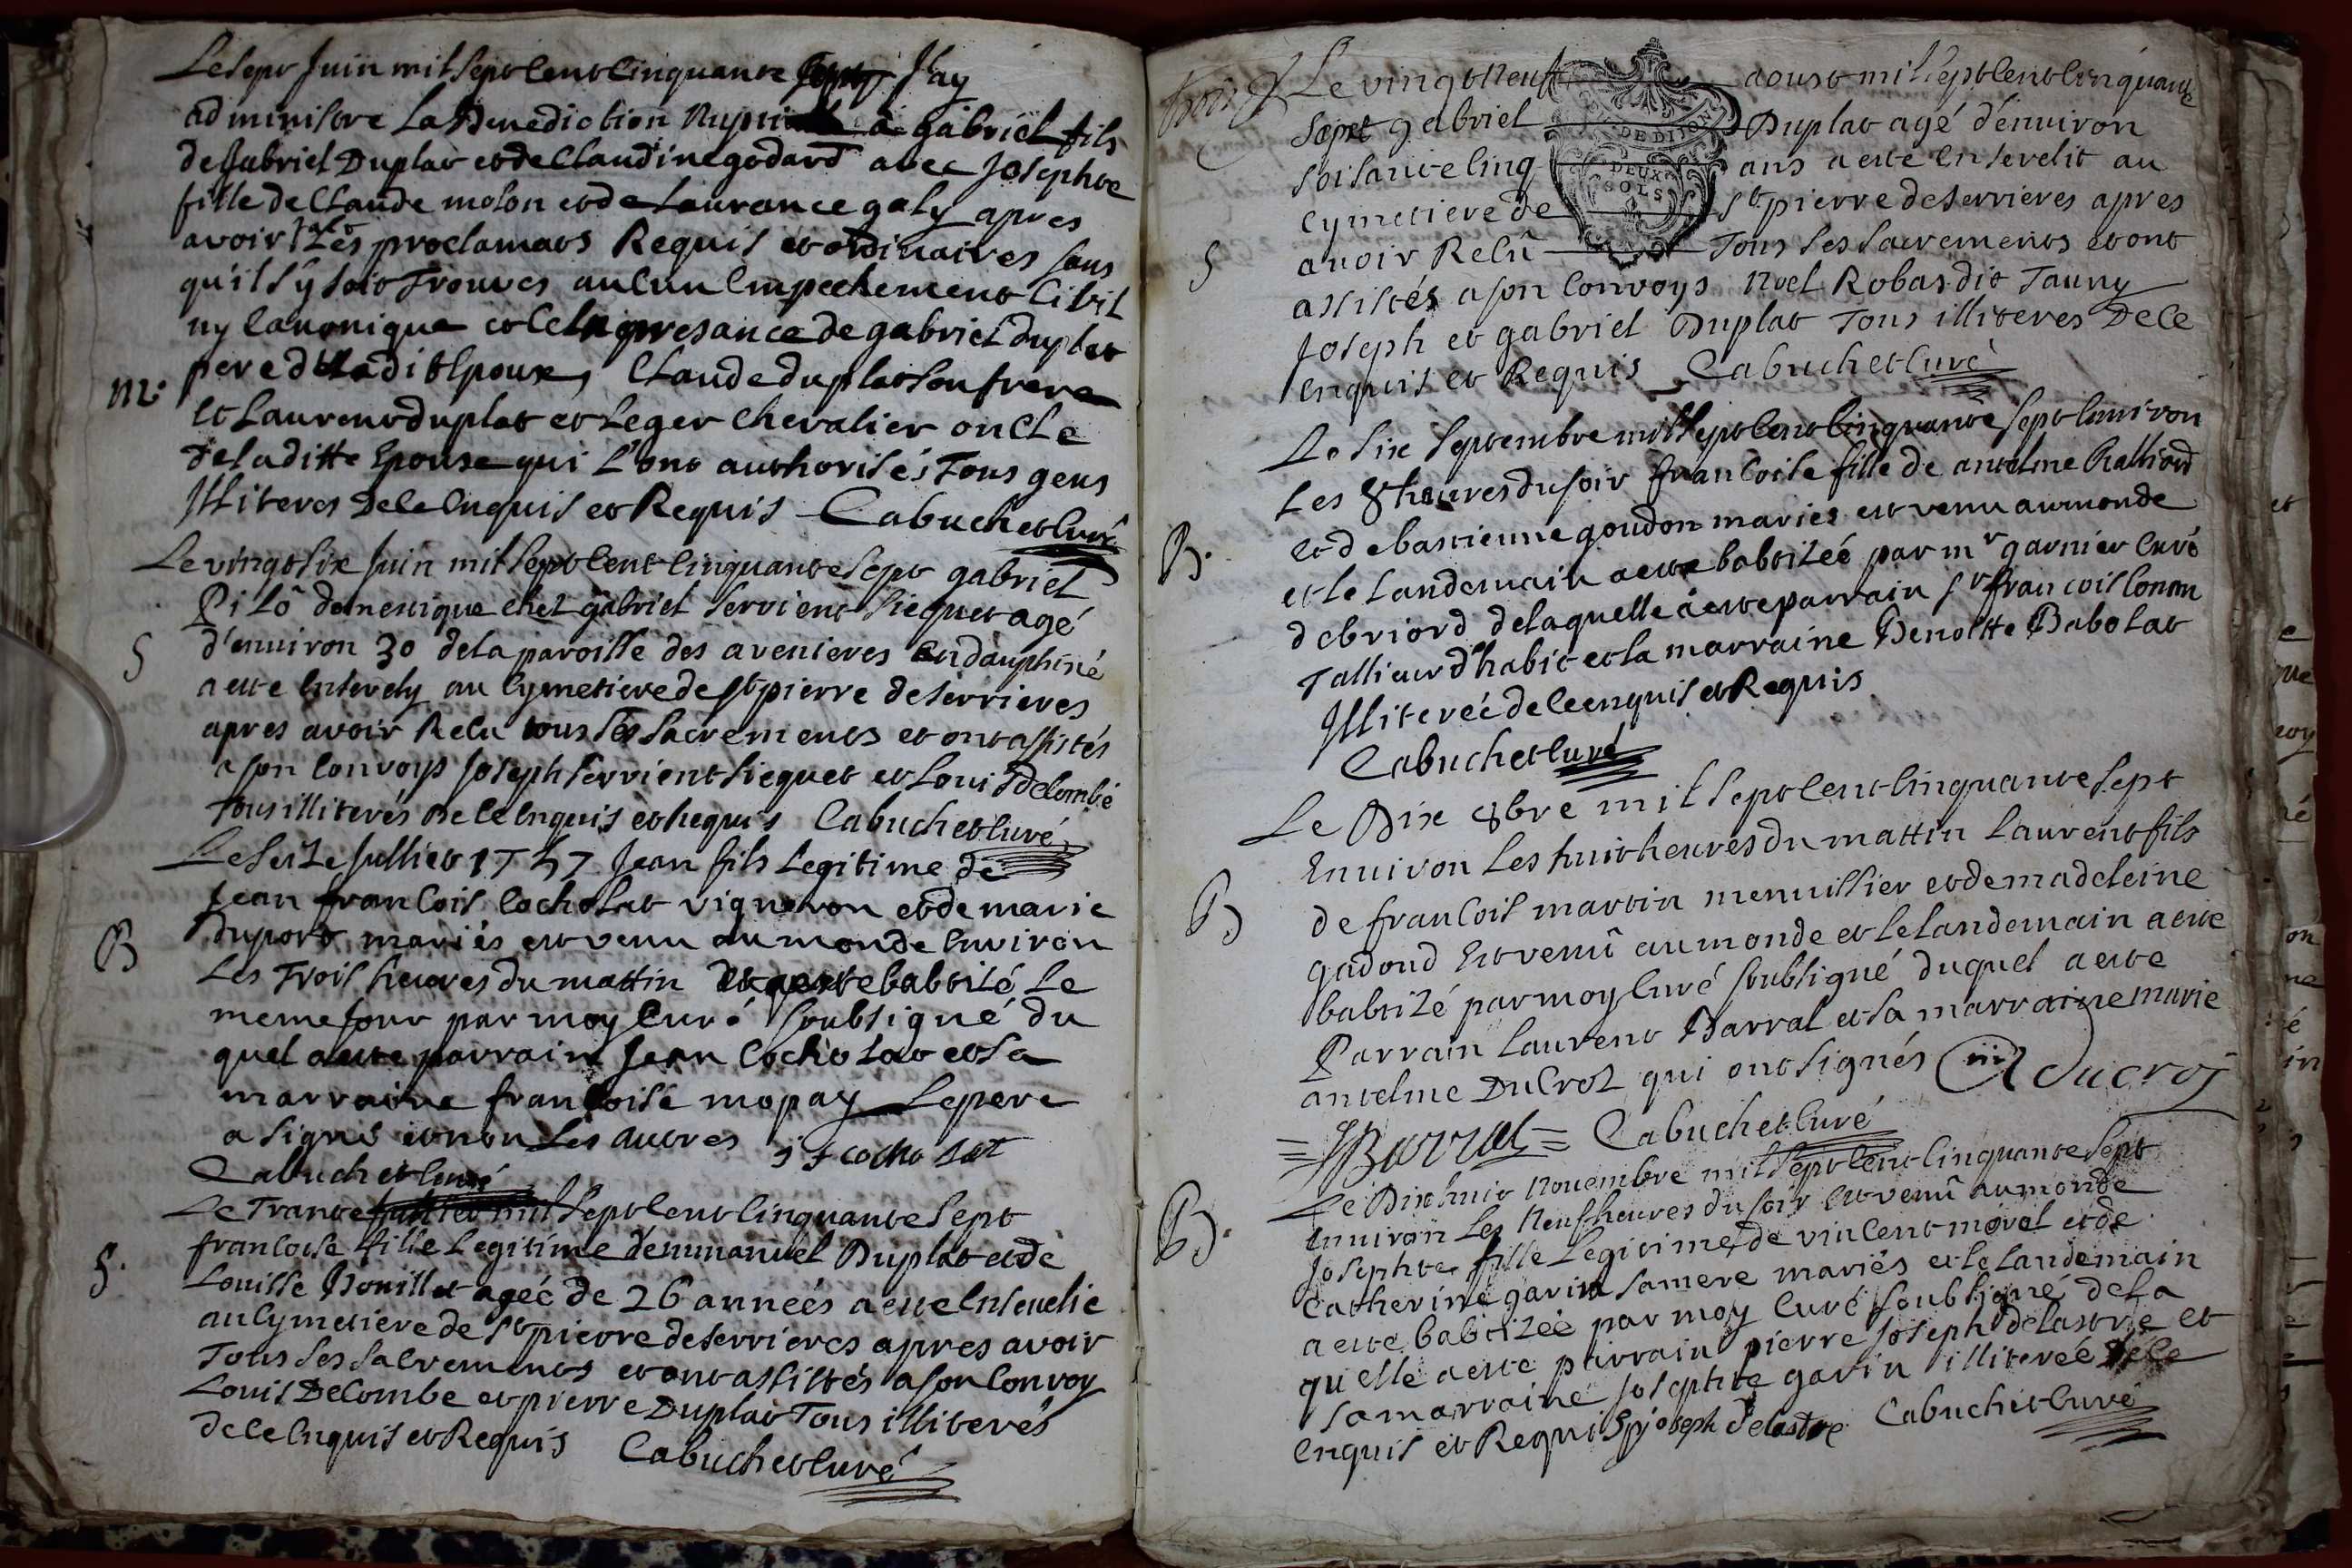 Le sept Juin mil sept cent cinquante sept J'ay
administre La Benediction Nuptiale a gabriel fils
de gabriel Duplat et de Claudine godard avec Josephte
fille de Claude molon et de Laurance galy apres
avoir fait Les proclamats Requis et ordinaires sans
qu'il s'y soit Trouves aucun Empechement Civil
ny Canonique et ce En presance de gabriel duplat
m. pere du adit Epoux, Claude duplat son frere
et Laurent duplat et Leger Chevalier oncle
de la ditte Epouse qui L'ont authorisés Tous gens
Illiteres De ce Enquis et Requis Cabuchet Curé
Le vingt six Juin mil sept cent cinquante sept gabriel
Pilô domestique chez gabriel Servient Siequet agé
S d'environ 30 de la paroisse des avenieres En dauphiné
a este Ensevely au Cymetiere de St pierre de serrieres
apres avoir Recu tous ses sacrements et ont assistés
a son Convoys Joseph Servient Siequet et Louis Decombe
Tous illiterés De ce Enquis et Requis Cabuchet Curé
Le seize Julliet 1757 Jean fils Legitime de
Jean francois Cocholat vigneron et de marie
B duport mariés est venu au monde Environ
Les Trois heures du mattin Et a este babtisé Le
meme Jour par moy Curé soubsigné du
quel a este parrain Jean Cocholat et sa
marraine francoise mopay Le pere
a signé et non Les autres J f cocholat
Cabuchet Curé
Le Trante Julliet mil sept cent cinquante sept
francoise fille Legitime d'emmanuel Duplat et de
S. Louisse Bouillet ageé de 26 anneés a este Ensevelie
au Cymetiere de St pierre de serrieres apres avoir
Tous ses sacrements et ont assistés a son Convoy
Louis Decombe et pierre Duplat Tous illiterés
de ce Enquis et Requis Cabuchet Curé
Le vingt neuf aoust mil sept cent cinquante
Sept gabriel Duplat agé d'environ
soisante cinq ans a este Ensevelit au
Cymetiere de St pierre de serrieres apres
S avoir Relû Tous ses sacrements et ont
assistés a son Convoys Noel Robas dit Tauny
Joseph et gabriel Duplat Tous illiteres De ce
Enquis et Requis Cabuchet Curé
DE DIJON
DEUX
SOLS
Le six septembre mil sept cent cinquante sept Environ
Les 8 heures du soir francoise fille de antelme Ralliord
B. et de bastienne goudon mariés est venu au monde
et le Landemain a este babtizeé par mr garnier curé
de briord de laquelle a este parrain sr francois Conan
Tallieur d'habit et la marraine Benoitte Babolat
Illitereé de ce enquis et Requis
Cabuchet Curé
Le Dix 8bre mil sept cent cinquante sept
Environ Les huit heures du mattin Laurent fils
B de francois martin menuissier et de madeleine
gadoud Est venû au monde et Le Landemain a este
babtizé par moy Curé soubsigné duquel a este
Parrain Laurent Barral et sa marraine marie
antelme DuCroz qui ont signés A ducroz
= J Barral = Cabuchet Curé
Le Dixhuit Novembre mil sept cent cinquante sept
B. Environ Les Neuf heures du soir Est venû au monde
Josephte fille Legitime de vincent morel et de
Catherine garin sa mere mariés et le Landemain
a este babtizeé par moy Curé soubsigné de la
quelle a este parrain pierre Joseph delastre et
sa marraine Josephte garin illitereé de ce
Enquis et Requis pjoseph delastre Cabuchet Curé